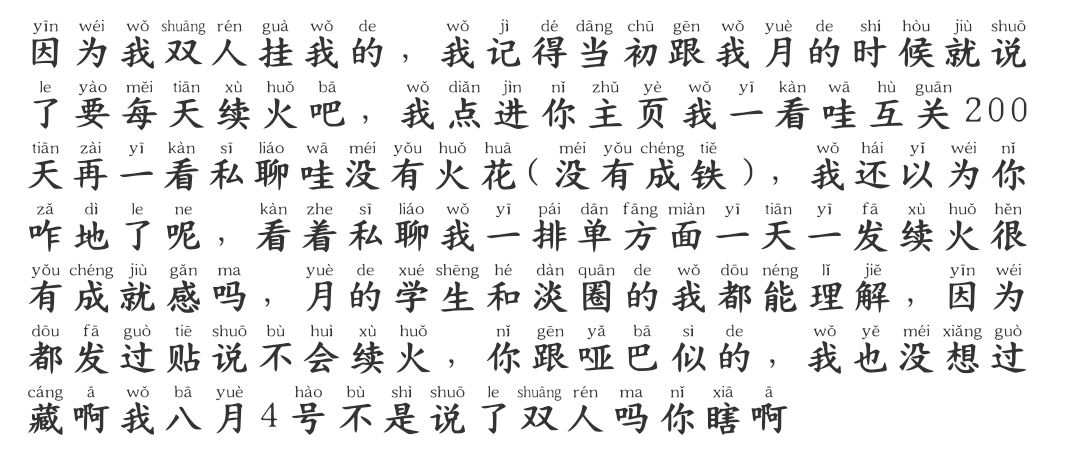 yīn wéi wǒ shuāng rén guà wǒ de wǒ jì dé dāng chū gēn wǒ yuè de shí hòu jiù shuō
因为我双人挂我的，我记得当初跟我月的时候就说
le yào měi tiān xù huǒ bā wǒ diǎn jìn nǐ zhǔ yè wǒ yī kàn wā hù guān
了要每天续火吧，我点进你主页我一看哇互关200
tiān zài yī kàn sī liáo wā méi yǒu huǒ huā méi yǒu chéng tiě wǒ hái yǐ wéi nǐ
天再一看私聊哇没有火花(没有成铁)，我还以为你
zǎ dì le ne kàn zhe sī liáo wǒ yī pái dān fāng miàn yī tiān yī fā xù huǒ hěn
咋地了呢，看着私聊我一排单方面一天一发续火很
yǒu chéng jiù gǎn ma yuè de xué shēng hé dàn quān de wǒ dōu néng lǐ jiě yīn wéi
有成就感吗，月的学生和淡圈的我都能理解，因为
dōu fā guò tiē shuō bù huì xù huǒ nǐ gēn yǎ bā sì de wǒ yě méi xiǎng guò
都发过贴说不会续火，你跟哑巴似的，我也没想过
cáng ā wǒ bā yuè hào bù shì shuō le shuāng rén ma nǐ xiā ā
藏啊我八月4号不是说了双人吗你瞎啊